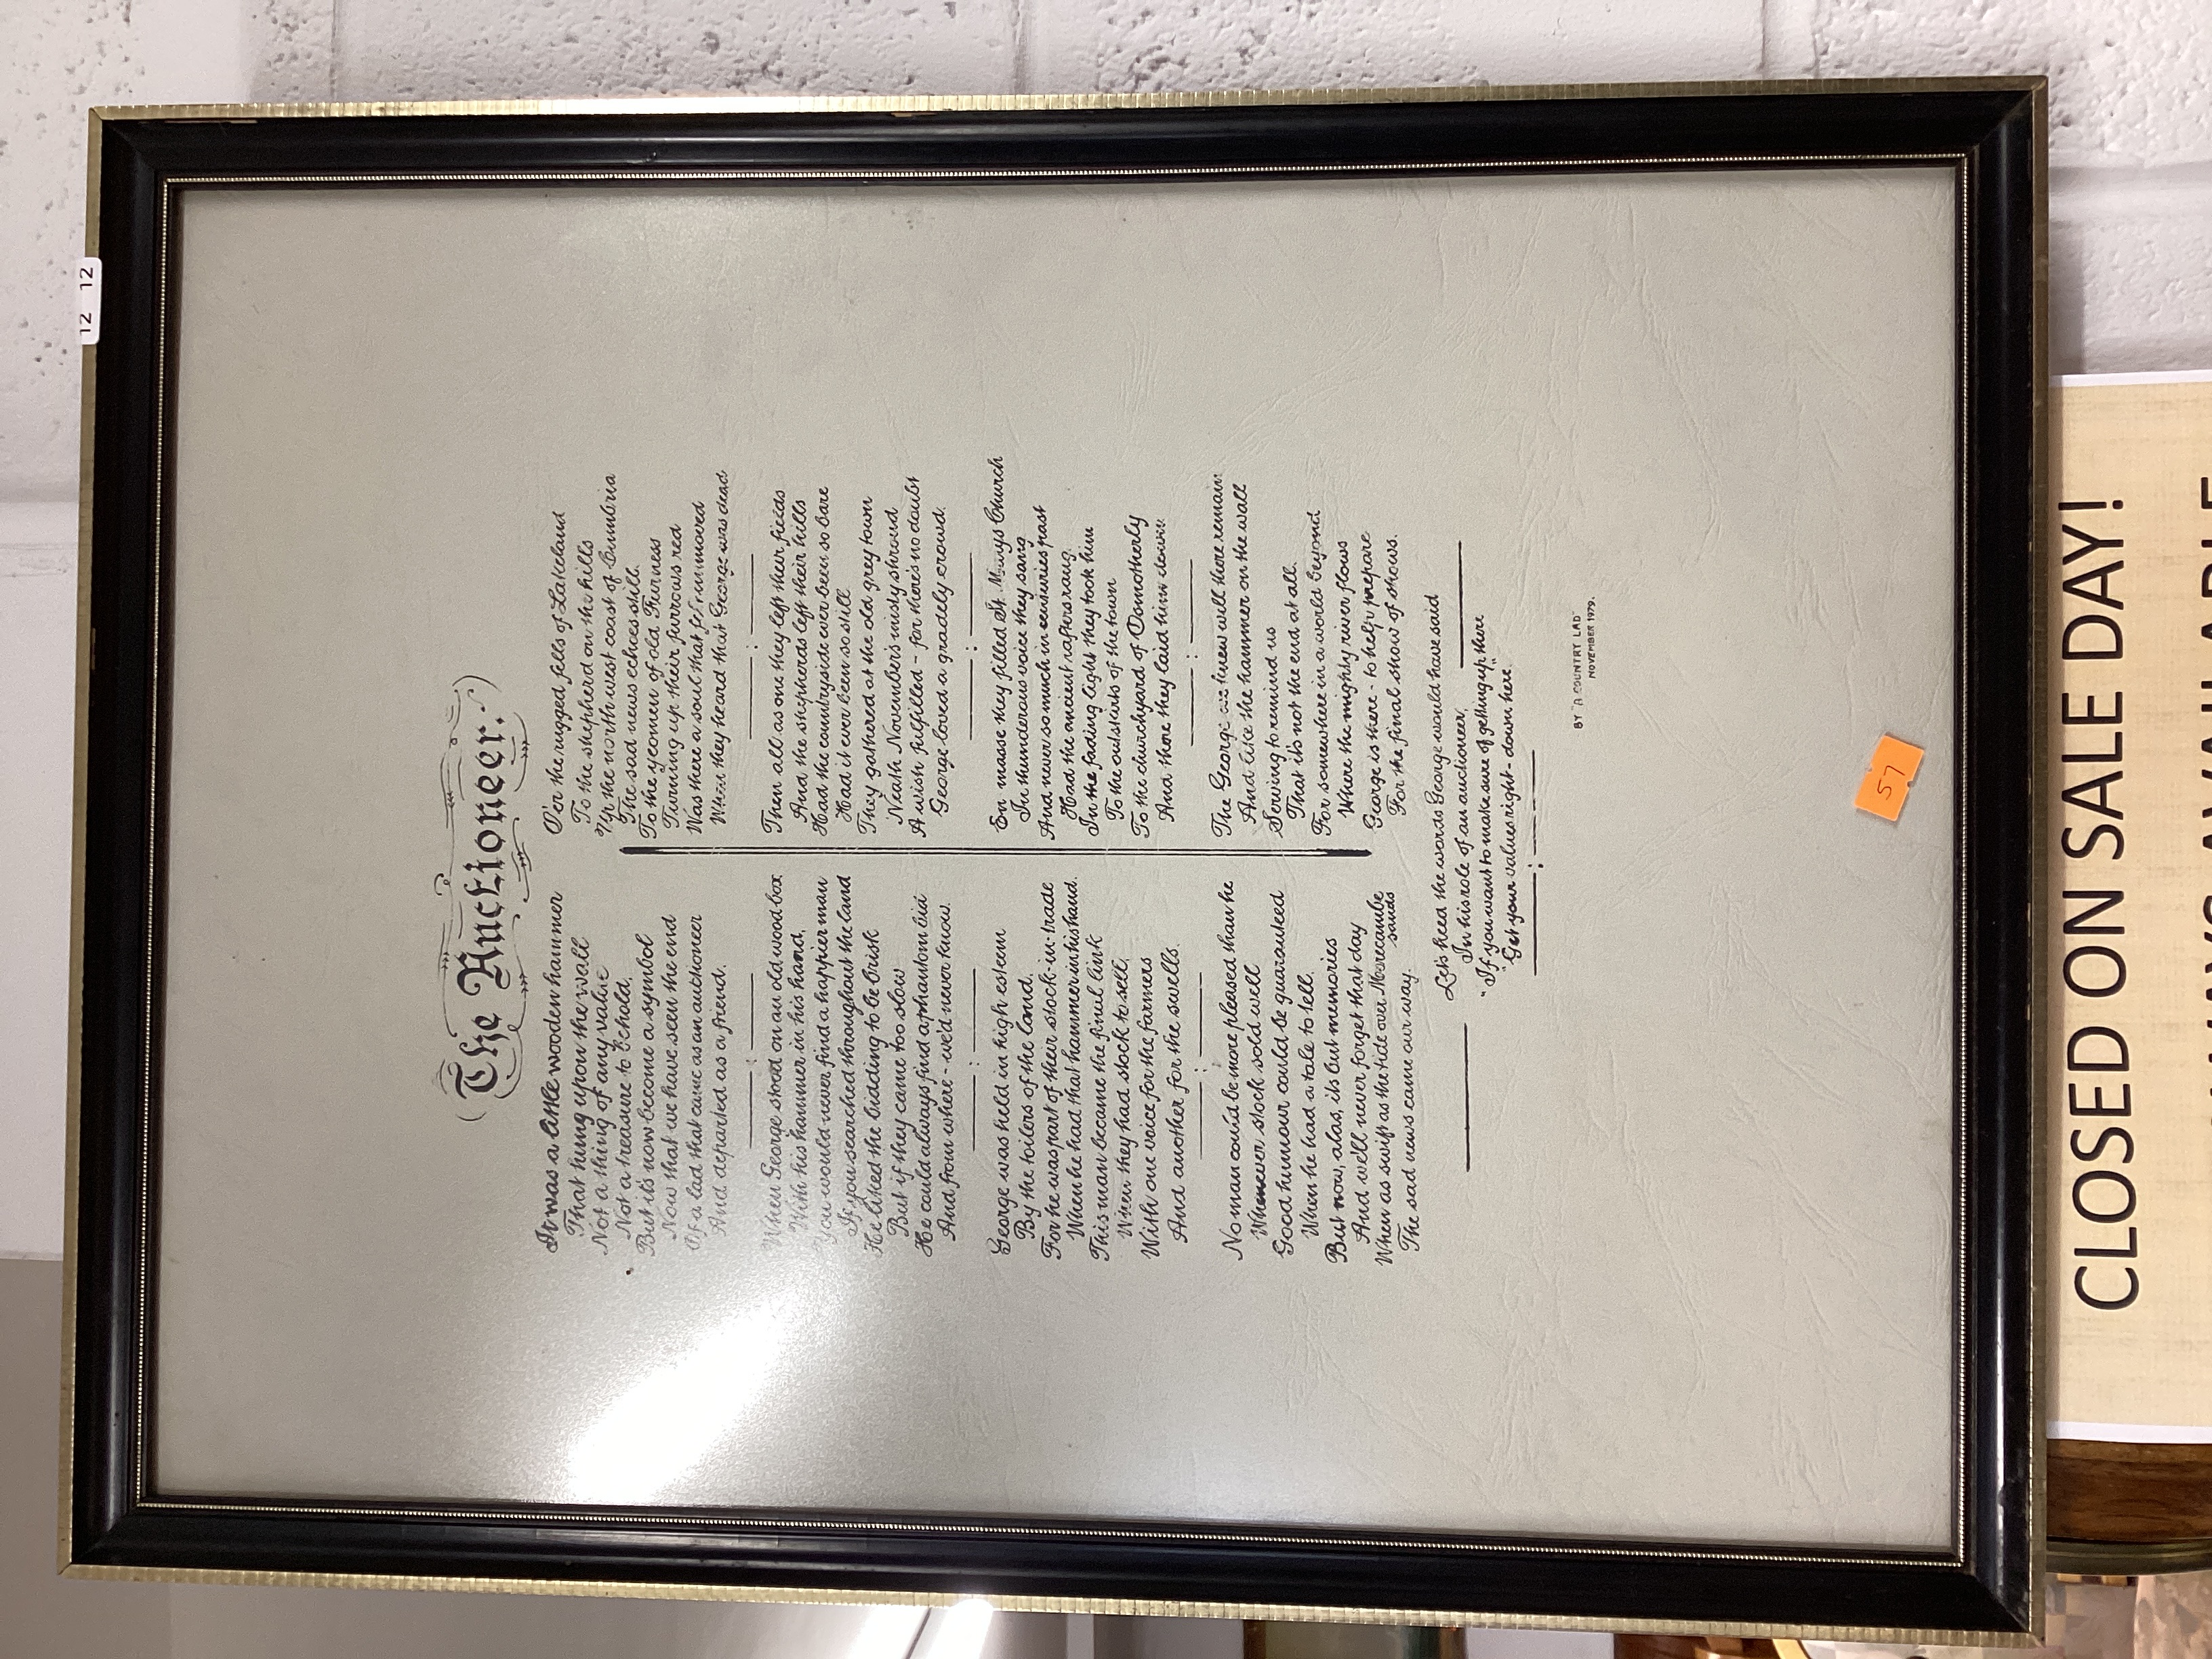 The Auctioneer.
It was a little wooden hammer
That hung upon the wall
Not a thing of any value
Not a treasure to behold,
But it's now become a symbol
Now that we have seen the end
Of a lad that came as an auctioneer
And departed as a friend.
When George stood on an old wood box,
With his hammer in his hand,
You would never find a happier man
If you searched throughout the land
He liked the bidding to be brisk
But if they came too slow
He could always find a phantom bid
And from where - we'd never know.
George was held in high esteem
By the toilers of the land.
For he was part of their stock-in-trade
When he had that hammer in his hand.
This man became the final link
When they had stock to sell,
With one voice for the farmers
And another for the swells.
No man could be more pleased than he
Whenever stock sold well
Good humour could be guaranteed
When he had a tale to tell.
But now, alas, its but memories
And we'll never forget that day
When as swift as the tide over Morecambe
sands
The sad news came our way.
O'er the rugged fells of Lakeland
To the shepherd on the hills
Up the north west coast of Cumbria
The sad news echoes still.
To the yeomen of old Furness
Turning up their furrows red
Was there a soul that felt unmoved
When they heard that George was dead
Then all as one they left their fields
And the shepherds left their hills
Had the countryside ever been so bare
Had it ever been so still
They gathered at the old grey town
Neath November's misty shroud
A wish fulfilled - for there's no doubt
George loved a gradely crowd.
En masse they filled St. Marys Church
In thunderous voice they sang
And never so much in centuries past
Had the ancient rafters rang.
In the fading light they took him
To the outskirts of the town
To the churchyard of Osmotherly
And there they laid him down.
The George we knew will there remain
And like the hammer on the wall
Serving to remind us
That it's not the end at all.
For somewhere in a world beyond
Where the mighty river flows
George is there - to help prepare
For the final show of shows.
Let's heed the words George would have said
In his role of an auctioneer,
"If you want to make sure of getting up there
"Get your values right - down here."
BY "A COUNTRY LAD"
NOVEMBER 1979.
57
12 12
CLOSED ON SALE DAY!